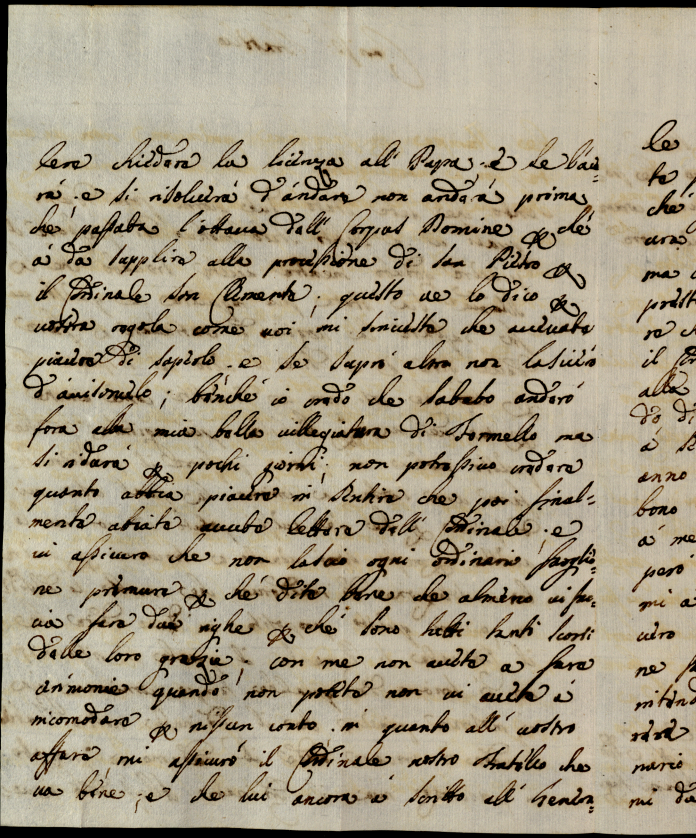 lere chiedere la licenza all' Papa, e se le da=
rá e si risolverá d'ándare non anderá prima
che passata l'ottava dell' Corpus Domine che
á da supplire alla processione di San Pietro
il Cardinale San Clemente, questo ve lo dico
vostra regola come voi mi scriveste che avevate
piacere di saperlo e se sapró altro non lasciero
d'avisarvelo; benché io credo che sabato anderó
fora alla mia bella villegiatura di Formello ma
si stará pochi giorni; non potressivo credere
quanto abbia piacere in sentire che poi final=
mente abiate avute lettere dell' Cardinale e
vi assicuro che non lascio ogni ordinario fargli=
ne premure che dite bene che almeno vi fa=
cia fare due righe che sono tutti tanti
delle loro grazie. con me non avete a fare
cirimonie quando non potete non vi avete á
incomodare nissun conto. in quanto all' vostro
affare mi assicuró il Cardinale nostro Fratello che
va bene, e che lui ancora á scritto all'
le
te
che
ma
prest
re
il
alla
do di
á
anno
bono
á me
peró
mi a
vero
ne
nario
mi da